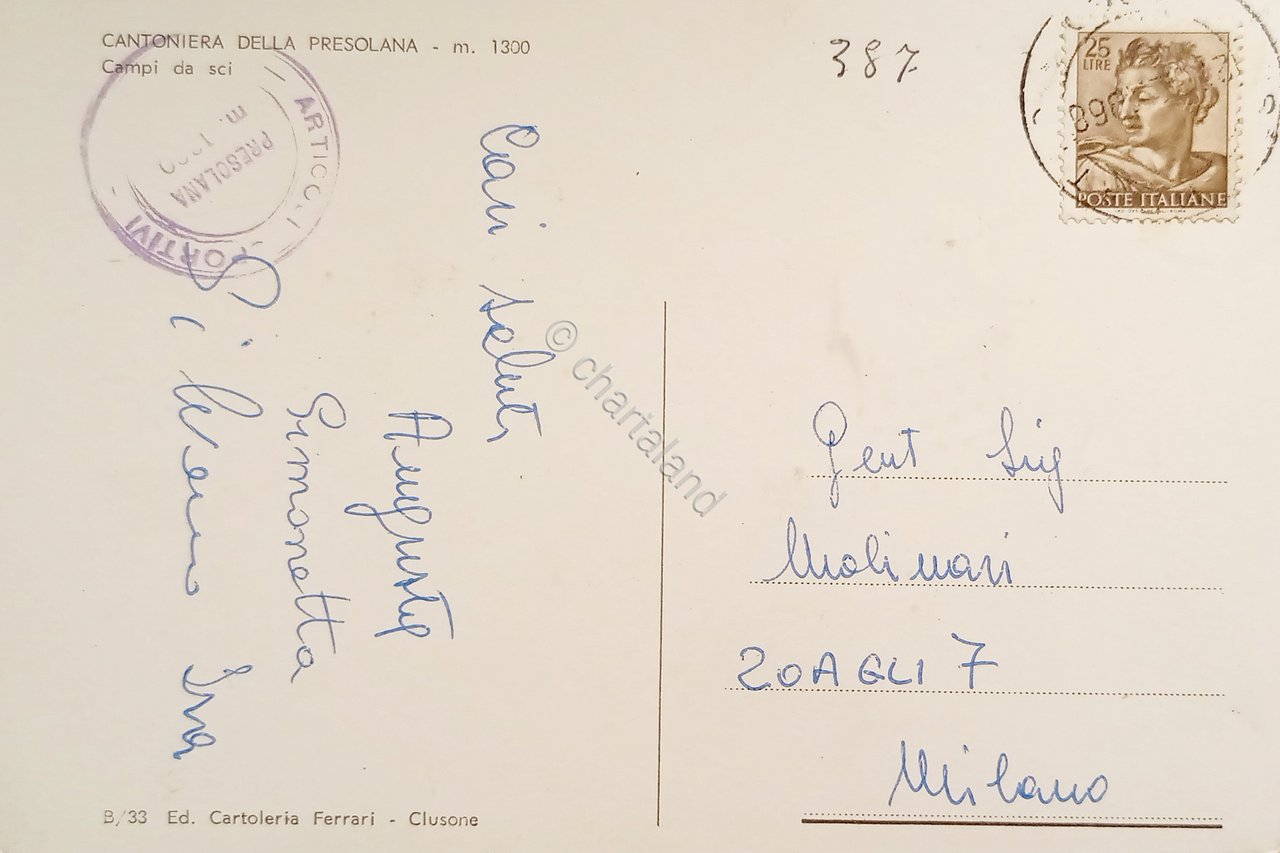 CANTONIERA DELLA PRESOLANA - m. 1300
Campi da sci
ARTICOLI SPORTIVI
PRESOLANA
m.
387
25
LIRE
POSTE ITALIANE
Cari saluti
Augusto
Simonetta
Ina
© chartaland
Gent Sig
Molinari
ZOAGLI 7
Milano
B/33 Ed. Cartoleria Ferrari - Clusone